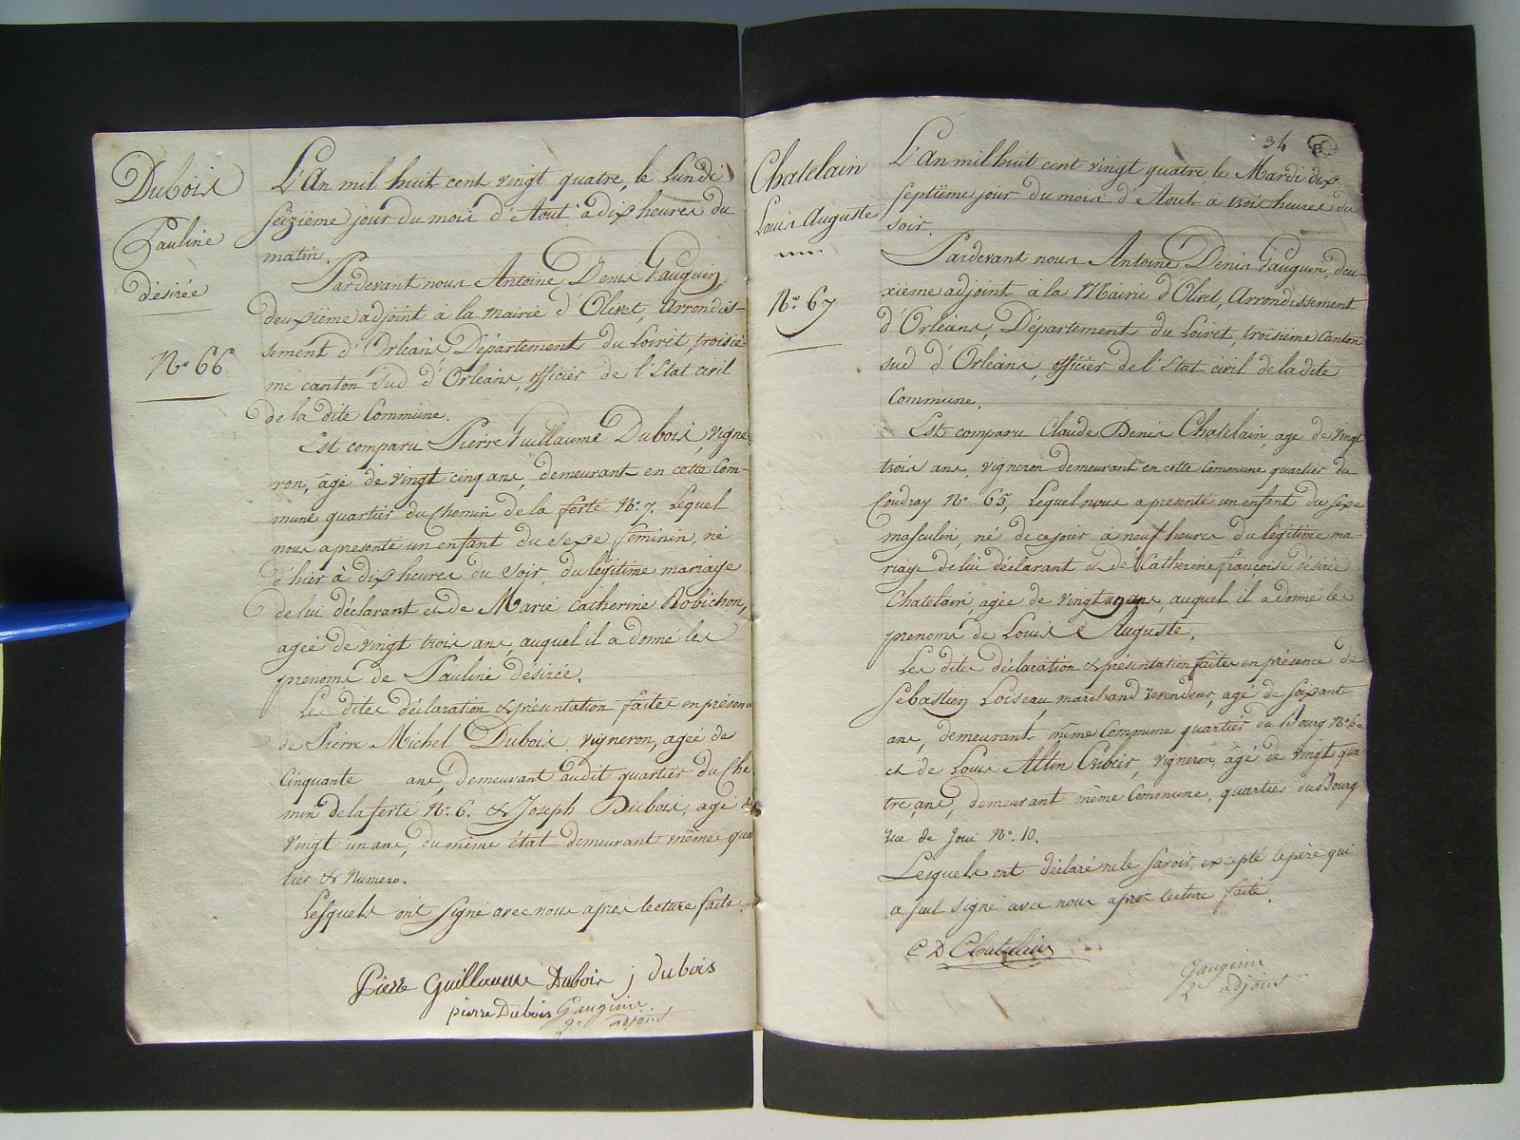 Dubois
Pauline
désirée
No. 66
L'An mil huit cent vingt quatre, le Lundi
seizieme jour du mois d'Aout à dix heures du
matin.
Pardevant nous Antoine Denis Gauguin,
deuxième adjoint a la mairie d'Olivet, Arrondis-
sement d'Orleans, Département du Loiret, troisiè-
me canton Sud d'Orleans, officier de l'Etat civil
de la dite Commune.
Est comparu Pierre Guillaume Dubois, vigne
ron, âgé de vingt cinq ans, demeurant en cette Com-
mune quartier du Chemin de la ferté No. 7. Lequel
nous a presenté un enfant du Sexe féminin, né
d'hier à dix heures du Soir, du légitime mariage
de lui déclarant et de Marie Catherine Robichon,
agée de vingt trois ans, auquel il a donné les
prenoms de Pauline désirée.
Les dites déclaration & présentation faites en présence
de Pierre Michel Dubois, vigneron, agée de
Cinquante ans, demeurant audit quartier du Che
min de la ferté No. 6. & Joseph Dubois, agé de
vingt un ans, du même état demeurant même quar
tier & Numero.
Lesquels ont signé avec nous apres lecture faite.
Pierre Guillaume Dubois j dubois
pierre Dubois Gauguin
2e adjoint
34
Chatelain
Louis Auguste
No. 67
L'An mil huit cent vingt quatre le Mardi dix
septième jour du mois d'Aout a trois heures du
soir.
Pardevant nous Antoine Denis Gauguin, deu-
xieme adjoint à la Mairie d'Olivet, Arrondissement
d'Orléans, Département du Loiret, troisieme Canton
sud d'Orléans, officier de l'Etat civil de la dite
Commune.
Est comparu Claude Denis Chatelain, age de vingt
trois ans, vigneron demeurant en cette Commune quartier du
Coudray No. 65, Lequel nous a presenté un enfant du sexe
masculin, né de ce jour a neuf heures du légitime ma-
riage de lui déclarant et de Catherine françoise désirée
Chatelain, agée de vingt ans, auquel il a donné les
prenoms de Louis Auguste.
Les dites déclaration & présentation faites en présence de
Sebastien Loiseau, marchand revendeur, agé de soixante
ans, demeurant même Commune quartier du Bourg No. 62
et de Louis Altin Cribier, vigneron, âgé de vingt qua
tre ans, demeurant même Commune, quartier du Bourg
rue de Joui No. 10.
Lesquels ont déclaré ne le savoir, excepté le père qui
a seul signé avec nous après lecture faite.
C D Chatelain
Gauguin
2e adjoint